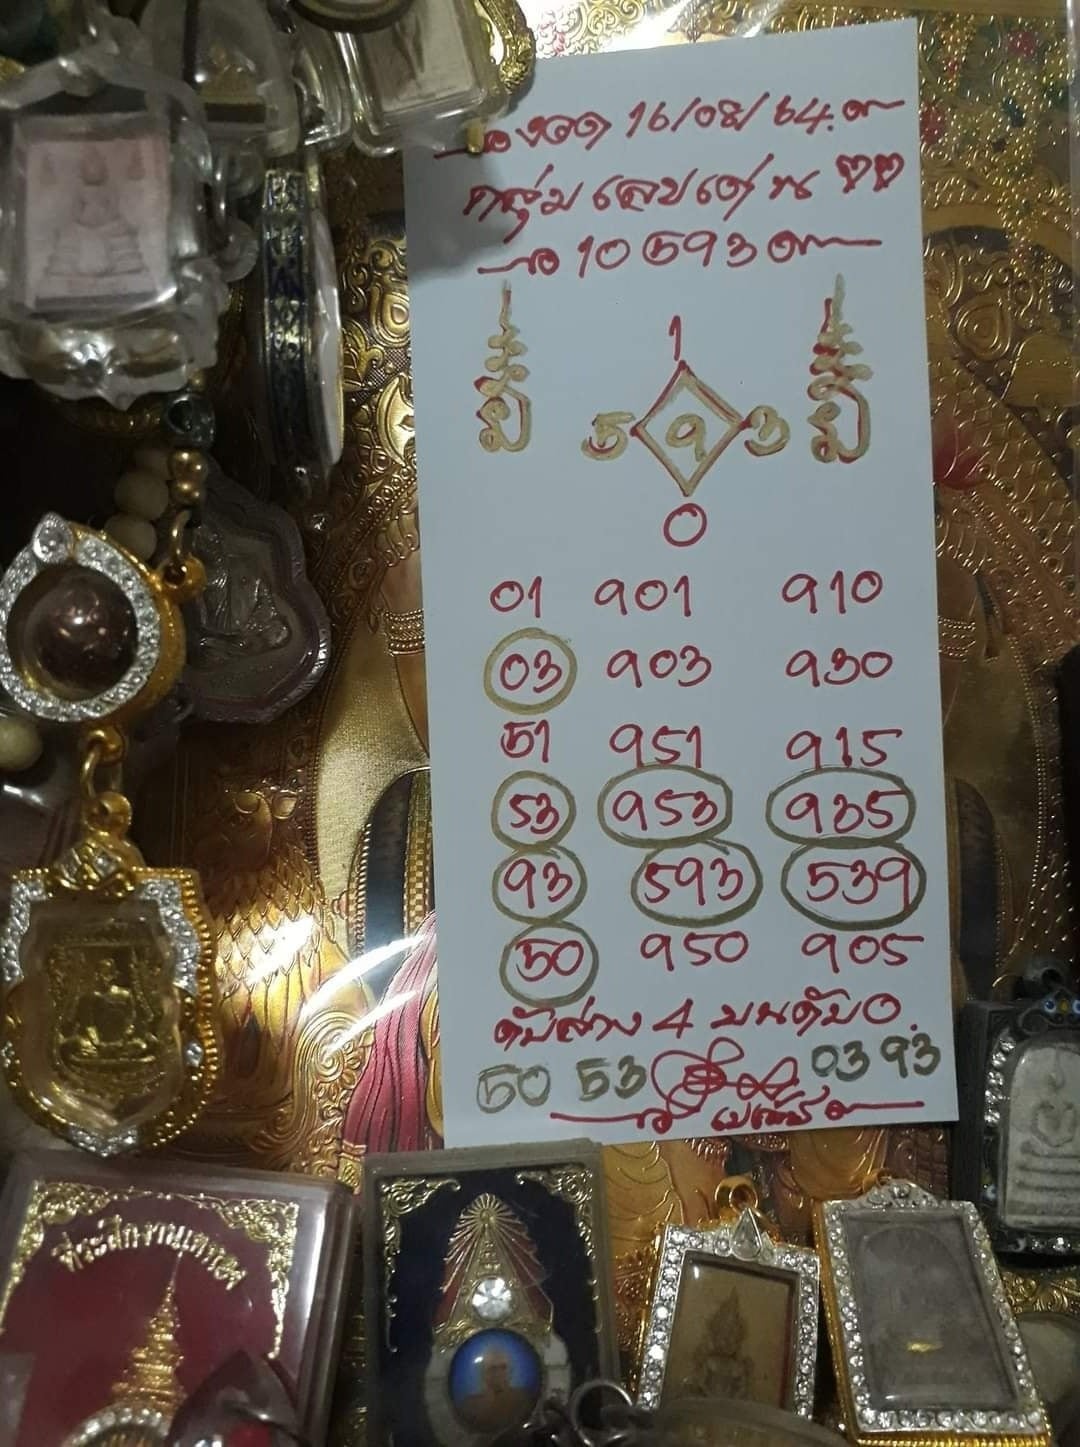 งวด 16/08/64
กลุ่ม เลขเด่น
10593
1
5 9 3
0
01 901 910
03 903 930
51 951 915
53 953 935
93 593 539
50 950 905
ดับล่าง 4 บนดับ 0.
50 53 03 93